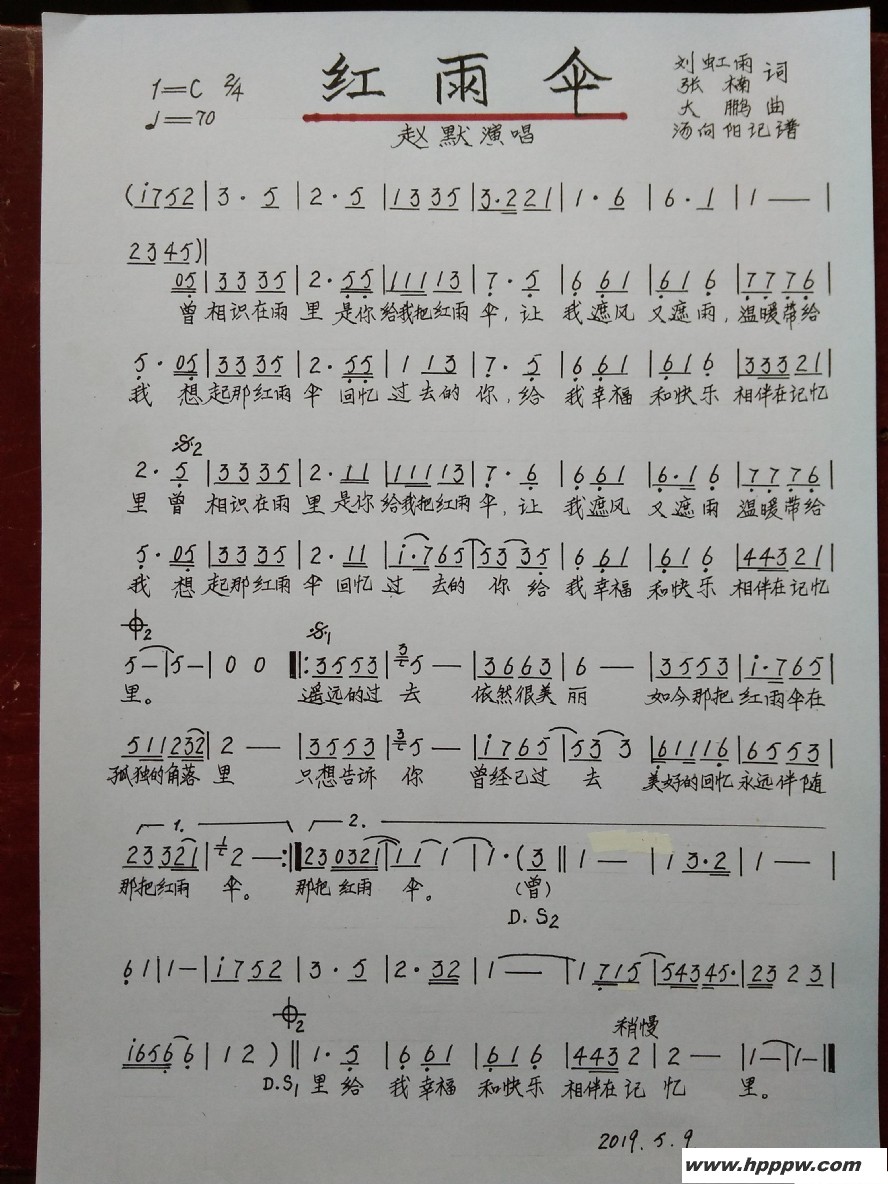 1=C 2/4
♩=70
红雨伞
赵默演唱
刘虹雨
张楠 词
大鹏 曲
汤向阳记谱
(i752 | 3·5 | 2·5 | 1335 | 3·221 | 1·6 | 6·1 | 1 — |
2345) |
05 | 3335 | 2·55 | 11113 | 7·5 | 6 61 | 61 6 | 7776 |
曾 相识在雨 里 是你给我把红雨 伞,让 我遮风 又遮雨,温暖带给
5·05 | 3335 | 2·55 | 1 13 | 7·5 | 6 61 | 61 6 | 33321 |
我 想起那红雨 伞 回忆 过去的 你,给 我幸福 和快乐 相伴在记忆
𝄋2
2·5 | 3335 | 2·11 | 11113 | 7·6 | 6 61 | 6·16 | 7776 |
里 曾 相识在雨 里 是你给我把红雨 伞,让 我遮风 又遮雨 温暖带给
5·05 | 3335 | 2·11 | i·765 | 53 35 | 6 61 | 61 6 | 44321 |
我 想起那红雨 伞 回忆 过 去的 你 给 我幸福 和快乐 相伴在记忆
𝄌2 𝄋1
5— | 5— | 0 0 |: 3553 | 3 5 — | 3663 | 6 — | 3553 | i·765 |
里。 遥远的过 去 依然很美 丽 如今那把 红雨伞在
511232 | 2 — | 3553 | 3 5 — | i765 | 53 3 | 61116 | 6553 |
孤独的角落 里 只想告诉 你 曾经已过 去 美好的回忆 永远伴随
1. 2.
23 321 | 1 2 — :| 23 0321 | 11 1 | 1·(3 || 1 — | 1 3·2 | 1 — |
那把红雨 伞。 那把 红雨 伞。 (曾)
D.S2
61 | 1— | i752 | 3·5 | 2·32 | 1 — | 1 715 | 54345· | 23 2 3 |
𝄌2 稍慢
i656 6 | 1 2 ) || 1·5 | 6 61 | 61 6 | 443 2 | 2 — | 1— | 1— ||
D.S1 里 给 我幸福 和快乐 相伴在记 忆 里。
2019.5.9
www.hpppw.com